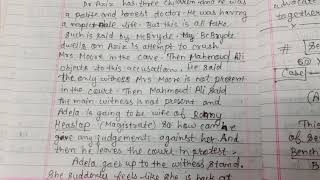 Dr Aziz has three children and he was
a polite and honest doctor. He was having
a respectable life. But this is all fake
such is said by McBryde. McBryde
dwells on Aziz is attempt to crush
Mrs Moore in the cave. Then Mahmoud Ali
objects to this accusation. He said
the only witness Mrs Moore is not present
in the court. Then Mahmoud Ali said
The main witness is not present and
Adela is going to be wife of Ronny
Heaslop (Magistrate) so how can he
gave any judgements against her. And
then he leaves the court in protest.
Adela goes up to the witness stand.
She suddenly feels like she is back at
advocate
together
#
Case
of
Bench